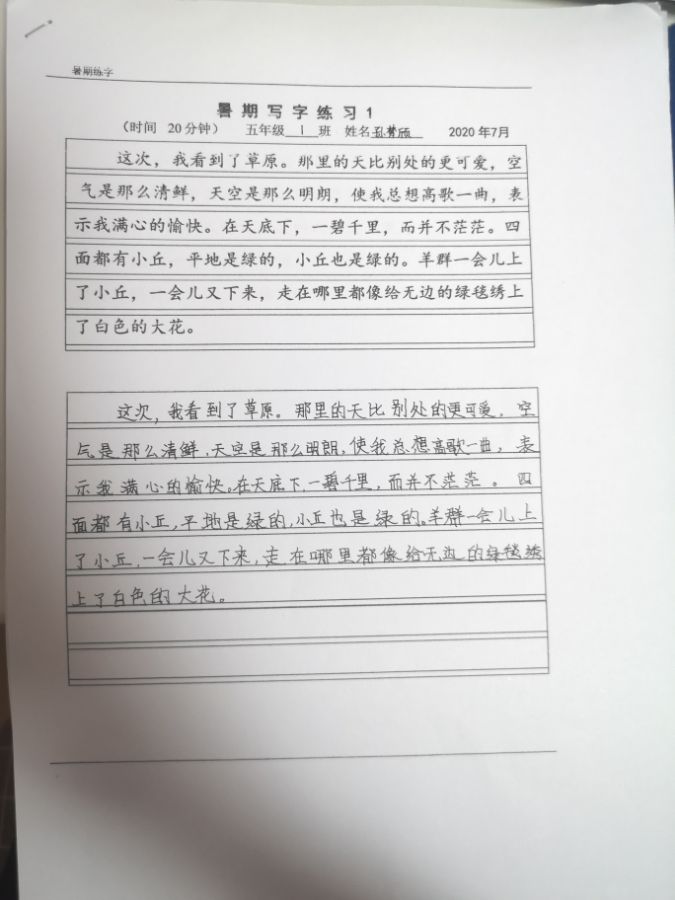 暑期练字
暑期写字练习1
（时间 20分钟） 五年级 1 班 姓名 孙 2020年7月
这次，我看到了草原。那里的天比别处的更可爱，空
气是那么清鲜，天空是那么明朗，使我总想高歌一曲，表
示我满心的愉快。在天底下，一碧千里，而并不茫茫。四
面都有小丘，平地是绿的，小丘也是绿的。羊群一会儿上
了小丘，一会儿又下来，走在哪里都像给无边的绿毯绣上
了白色的大花。
这次，我看到了草原。那里的天比别处的更可爱，空
气是那么清鲜，天空是那么明朗，使我总想高歌一曲，表
示我满心的愉快。在天底下，一碧千里，而并不茫茫。四
面都有小丘，平地是绿的，小丘也是绿的。羊群一会儿上
了小丘，一会儿又下来，走在哪里都像给无边的绿毯绣
上了白色的大花。